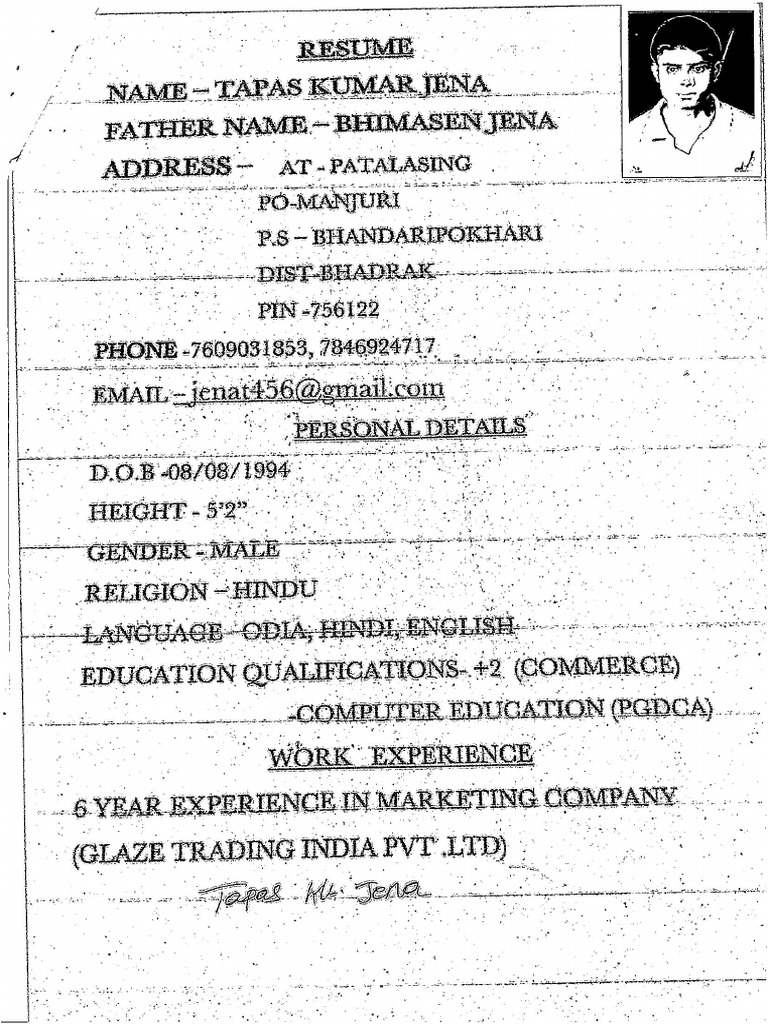 RESUME
NAME – TAPAS KUMAR JENA
FATHER NAME – BHIMASEN JENA
ADDRESS – AT - PATALASING
PO-MANJURI
P.S – BHANDARIPOKHARI
DIST-BHADRAK
PIN -756122
PHONE -7609031853, 7846924717
EMAIL – jenat456@gmail.com
PERSONAL DETAILS
D.O.B -08/08/1994
HEIGHT - 5'2”
GENDER - MALE
RELIGION – HINDU
LANGUAGE - ODIA, HINDI, ENGLISH
EDUCATION QUALIFICATIONS- +2 (COMMERCE)
-COMPUTER EDUCATION (PGDCA)
WORK EXPERIENCE
6 YEAR EXPERIENCE IN MARKETING COMPANY
(GLAZE TRADING INDIA PVT .LTD)
Tapas Ku. Jena